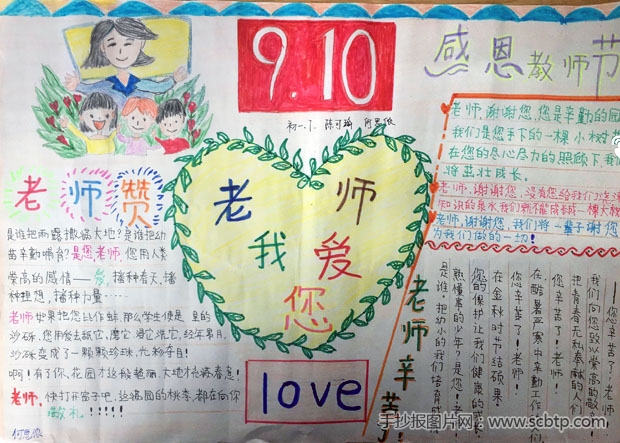 9.10
感恩教师节
初一.丁 陈可瑜 何思依
老师,谢谢您,您是辛勤的园
我们是您手下的一棵小树苗
在您的尽心尽力的照顾下我
将茁壮成长。
老师,谢谢您,没有您给我们浇
知识的泉水我们就不能成长成一棵大树
老师,谢谢您,我们将一辈子谢您
为我们做的一切!
老师赞
是谁把雨露撒遍大地?是谁把幼
苗辛勤哺育?是您,老师,您用人类
崇高的感情——爱,播种春天,播
种理想,播种力量……
老师如果把您比作蚌,那么学生便是里的
沙砾,您用爱去舐它,磨它,浸它,洗它,经年累月,
沙砾变成了一颗颗珍珠,光彩夺目!
啊!有了你,花园才这般艳丽,大地才充满春意!
老师,快打开窗子吧,这满园的桃李,都在向你
敬礼!!!!!
老师
我爱
您
love
老师辛苦了!
——您辛苦了!老师
我们向您致以崇高的敬
把青春无私奉献的人们
您辛苦了!老师!
在酷暑严寒中辛勤工作的人
您辛苦了!老师!
在金秋时节结硕果
您的保护让我们健康的成
熟懂事的少年?是您!老
是谁,把幼小的我们培育成
手抄报图片网-www.scbtp.com